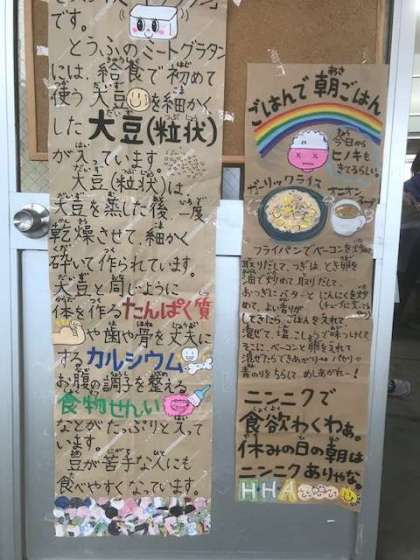 です。
とうふのミートグラタン
には、給食で初めて
使う大豆を細かく
した大豆(粒状)
が入っています。
大豆(粒状)は、
大豆を蒸した後、一度
乾燥させて、細かく
砕いて作られています。
大豆と同じように
体を作るたんぱく質
や歯や骨を丈夫に
するカルシウム
お腹の調子を整える
食物せんい
などがたっぷりと入って
います。
豆が苦手な人にも
食べやすくなっています。
ごはんで朝ごはん
今日から
ヒノキも
きてるらしい
ガーリックライス
オニオン
スープ
フライパンでベーコンを
取りだして、つぎは、とき卵を
油で炒めて取りだして、
おつぎにバターとにんにくを炒
めて、よい香りが
してきたら、ごはんを入れて
混ぜて、塩こしょうで味つけして
そこに、ベーコンと卵を入れて
混ぜたらできあがり。パセリや
青のりをちらして、めしあがれー!
ニンニクで
食欲わくわぁ。
休みの日の朝は
ニンニクありやな。
HHA